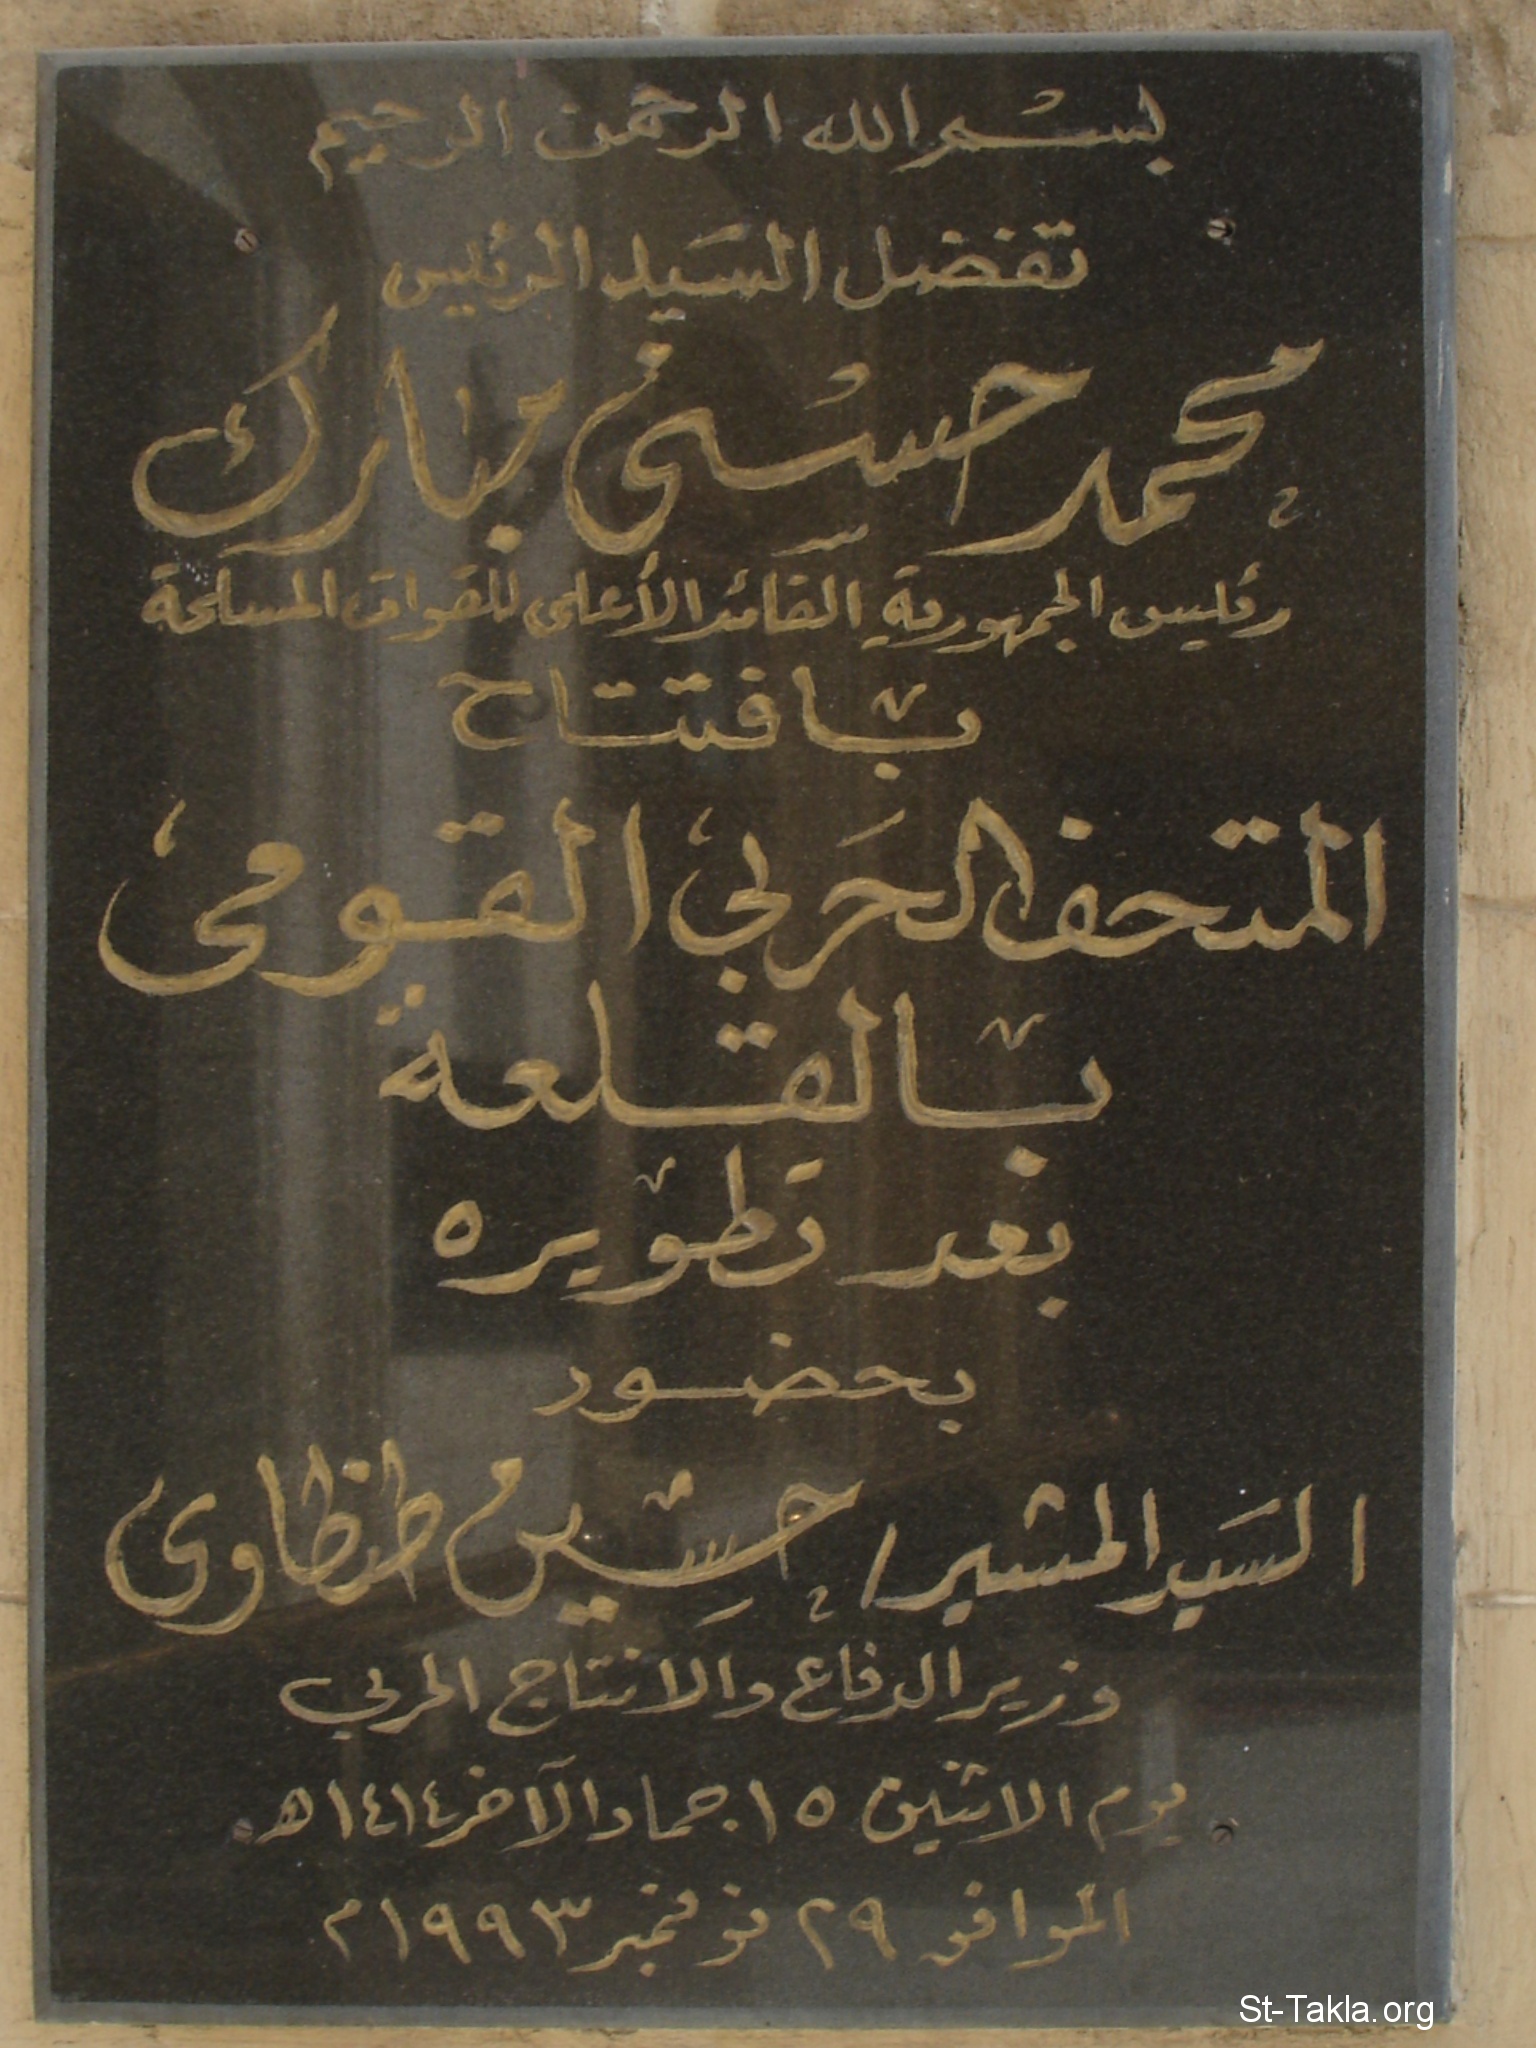 بسم الله الرحمن الرحيم
تفضل السيد الرئيس
محمد حسني مبارك
رئيس الجمهورية القائد الأعلى للقوات المسلحة
بافتتاح
المتحف الحربي القومى
بالقلعة
بعد تطويره
بحضور
السيد المشير / حسين طنطاوى
وزير الدفاع والانتاج الحربي
يوم الاثنين ١٥ جماد الآخر ١٤١٤هـ
الموافق ٢٩ نوفمبر ١٩٩٣م
St-Takla.org